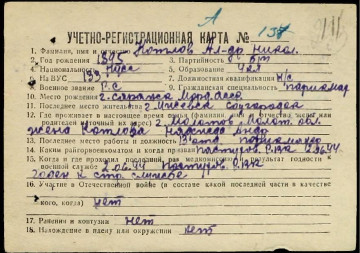 А
УЧЕТНО-РЕГИСТРАЦИОННАЯ КАРТА № 137
1. Фамилия, имя и отчество Котлов Ал-др Никол.
2. Год рождения 1895 3. Партийность б/п
4. Национальность 5. Образование 4кл
6. На ВУС 133 7. Должностная квалификация н/с
8. Военное звание р-с 9. Гражданская специальность парикмахер
10. Место рождения г. Саранск Морд. АССР
11. Последнее место жительства г. Ижевск Соцгородок
12. Где проживает в настоящее время (фамилия, имя и отчество жены или родителей и точный их адрес) г. Молотов Молот. обл
жена Котлова
13. Последнее место работы и должность парикмахер
14. Каким райгорвоенкоматом и когда призван РВК
15. Когда и где проходил последний раз медкомиссию и результат годности к
военной службе 2.06.44 РВК
годен к
16. Участие в Отечественной войне (в составе какой последней части в качестве
кого, когда) нет
17. Ранения и контузии нет
18. Нахождение в плену или окружении нет